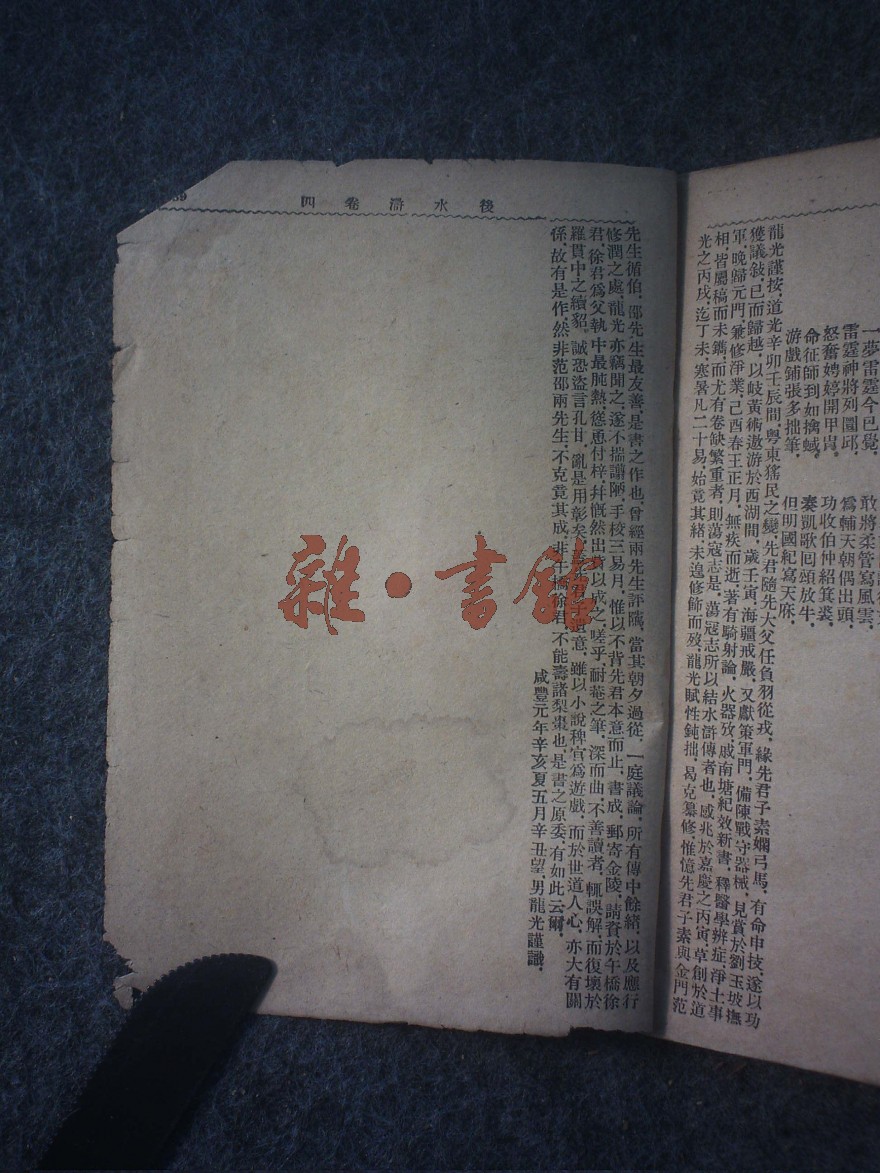 一夢雷霆今已覺,敢將柔管寫風雲,
雷霆神將列圜邱,爲輔天朝偶出頭,
怒奮娉婷開甲胄,功收伯仲紹箕裘,
命征師到如擒蜮,奏凱歌回頭放牛,
游戲鋪張多拙筆,但明國紀寫天庥,
龍光謹按,道光辛卯壬辰間,粵東猺民之變,先君隨先大父任負羽從戎,緣先君子素嫻弓馬,有命申技,遂以功
獲議敍,已而歸越,以岐黃術遨游於西湖間,歲壬寅,海疆戒嚴,又獻策軍門,備陳戰守器械,見賞於劉玉坡撫
軍,晚歸元門,兼修淨業,己酉春王正月,無疾而逝,著有騎射論,火器攷,戚南塘紀效新書,釋醫學辨症,淨土事
相,皆屬稿而未鐫,而尤有卷缺繁重者,則蕩寇志是,蕩寇志所以結水滸傳者也,感兆於嘉慶之丙寅,草創於道
光之丙戌,迄丁未,寒暑凡二十易,始竟其緒,未遑修飾而歿,龍光賦性鈍拙,曷克纂修,惟憶先君子素與金門范
後水滸卷四
先生循伯,邵先生最友善,是書之作也,曾經兩先生評隲,當其朝夕過從,一庭議論,所有傳中餘緒,以及應行
修潤之處,龍光亦竊聞之,遂不揣譾陋,手校三易月,惟以不背先君本意而止,書成,郵寄金陵,請資於午橋徐
君,徐君爲父執中最肫熱,慫恿付梓,幷慨然出資以成之,嗟乎,耐菴之筆,深而曲,不善讀者,輒誤解,而復壞於
羅貫中之續貂,誠恐盜言孔甘,亂是用彰矣,遺意,雖以小說稗官爲遊戲,而於世道人心,亦大有關
係,故有是作,然非范邵兩先生,不克竟其成,非午橋徐君,不能壽諸梨棗也,是書之原委,有如此云爾,
咸豐元年辛亥夏五月辛丑望,男龍光謹識,
雜·書館